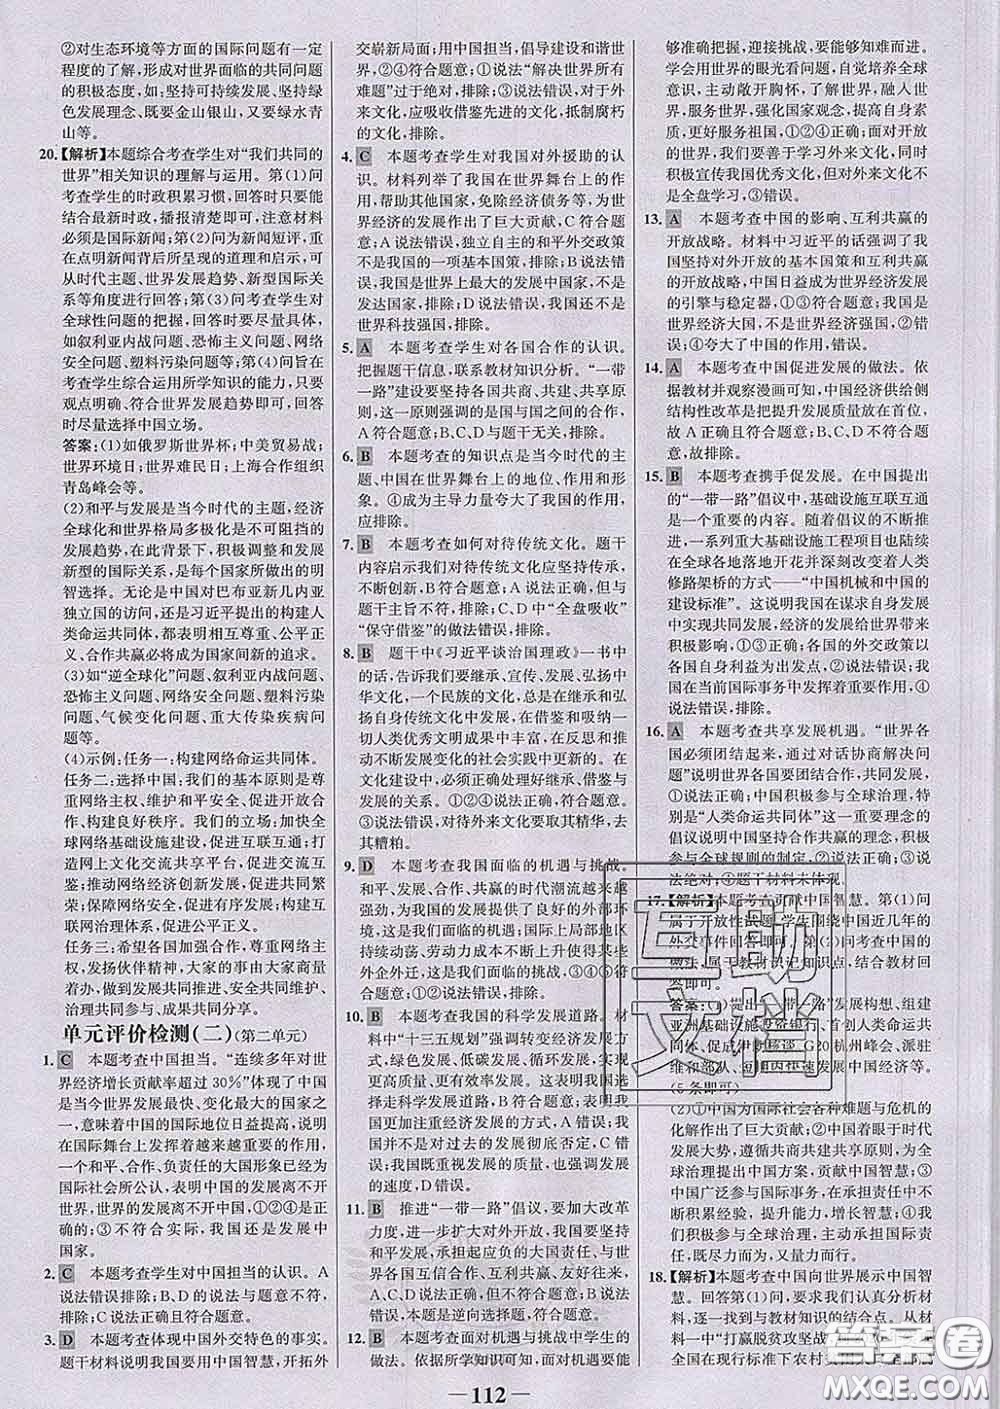 ②对生态环境等方面的国际问题有一定
程度的了解,形成对世界面临的共同问题
的积极态度,如;坚持可持续发展、坚持绿
色发展理念、既要金山银山,又要绿水青
山等。
20.【解析】本题综合考查学生对“我们共同的
世界”相关知识的理解与运用。第(1)问
考查学生的时政积累习惯,回答时只要能
结合最新时政,播报清楚即可,注意材料
必须是国际新闻;第(2)问为新闻短评,重
在点明新闻背后所呈现的道理和启示,可
从时代主题、世界发展趋势、新型国际关
系等角度进行回答;第(3)问考查学生对
全球性问题的把握,回答时要尽量具体,
如叙利亚内战问题、恐怖主义问题、网络
安全问题、塑料污染问题等;第(4)问旨在
考查学生综合运用所学知识的能力,只要
观点明确、符合世界发展趋势即可,回答
时尽量选择中国立场。
答案:(1)如俄罗斯世界杯;中美贸易战;
世界环境日;世界难民日;上海合作组织
青岛峰会等。
(2)和平与发展是当今时代的主题,经济
全球化和世界格局多极化是不可阻挡的
发展趋势,在此背景下,积极调整和发展
新型的国际关系,是每个国家所做的明
智选择。无论是中国对巴布亚新几内亚
独立国的访问,还是习近平提出的构建人
类命运共同体,都表明相互尊重、公平正
义、合作共赢必将成为国家间新的追求。
(3)如“逆全球化”问题、叙利亚内战问题、
恐怖主义问题、网络安全问题、塑料污染
问题、气候变化问题、重大传染疾病问
题等。
(4)示例:任务一:构建网络命运共同体。
任务二:选择中国;我们的基本原则是尊
重网络主权、维护和平安全、促进开放合
作、构建良好秩序。我们的立场:加快全
球网络基础设施建设,促进互联互通;
打造网上文化交流共享平台,促进交流互
鉴;推动网络经济创新发展,促进共同繁
荣;保障网络安全,促进有序发展;构建互
联网治理体系,促进公平正义。
任务三:希望各国加强合作,尊重网络主
权,发扬伙伴精神,大家的事由大家商量
着办,做到发展共同推进、安全共同维护、
治理共同参与、成果共同分享。
单元评价检测(二)(第二单元)
1. C 本题考查中国担当。“连续多年对世
界经济增长贡献率超过30%”体现了中国
是当今世界发展最快、变化最大的国家之
一,意味着中国的国际地位日益提高,说明
在国际舞台上发挥着越来越重要的作用,
一个和平、合作、负责任的大国形象已经为
国际社会所公认,表明中国的发展离不开
世界,世界的发展离不开中国,①②④是正
确的;③不符合实际,我国还是发展中
国家。
2. C 本题考查学生对中国担当的认识。A
说法错误排除;B、D的说法与题意不符,
排除;C说法正确且符合题意。
3. D 本题考查体现中国外交特色的事实。
题干材料说明我国要用中国智慧,开拓外
交崭新局面;用中国担当,倡导建设和谐世
界,②④符合题意;①说法“解决世界所有
难题”过于绝对,排除;③说法错误,对于外
来文化,应吸收借鉴先进的文化,抵制腐朽
的文化,排除。
4. C 本题考查学生对我国对外援助的认
识。材料列举了我国在世界舞台上的作
用,帮助其他国家,免除经济债务等,为世
界经济的发展作出了巨大贡献,C符合题
意;A说法错误,独立自主的和平外交政策
不是我国的一项基本国策,排除;B说法错
误,我国是世界上最大的发展中国家,不是
发达国家,排除;D说法错误,我国还不是
世界科技强国,排除。
5. A 本题考查学生对各国合作的认识。
把握题干信息,联系教材知识分析。“一带
一路”建设要坚持各国共商、共建、共享原
则,这一原则强调的是国与国之间的合作,
A符合题意;B、C、D与题干无关,排除。
6. B 本题考查的知识点是当今时代的主
题、中国在世界舞台上的地位、作用和形
象。④成为主导力量夸大了我国的作用,
应排除。
7. B 本题考查如何对待传统文化。题干
内容启示我们对待传统文化应坚持传承,
不断创新,B符合题意;A说法正确,但与
题干主旨不符,排除;C、D中“全盘吸收”
“保守借鉴”的做法错误,排除。
8. B 题干中《习近平谈治国理政》一书中
的话,告诉我们要继承、宣传、发展、弘扬中
华文化,一个民族的文化,总是在继承和弘
扬自身传统文化中发展,在借鉴和吸纳一
切人类优秀文明成果中丰富,在反思和推
动不断发展变化的社会实践中更新的。在
文化建设中,必须处理好继承、借鉴与
发展的关系。①②④说法正确,符合题意。
③说法错误,对待外来文化要取其精华,去
其糟粕。
9. D 本题考查我国面临的机遇与挑战。
和平、发展、合作、共赢的时代潮流越来越
强劲,给我国的发展提供了良好的外部环
境,这是我们面临的机遇;国际上局部地区
持续动荡、劳动力成本不断上升使得某些
外企外迁,这是我们面临的挑战,③④①符
合题意;②说法错误,排除。
10. B 本题考查我国的科学发展道路。材
料中“十三五规划”强调转变经济发展方
式,绿色发展、低碳发展、循环发展,实现
中华民族永续发展,这表明我国经济发展
走上了科学发展道路,B符合题意;我国
仍然是发展中国家,A错误;更加注重科
学发展并不是对过去的发展彻底否定,C错
误;我国既重视发展的质量,也重视发展
的速度,D错误。
11. B 推进“一带一路”倡议,要加大改革
力度,进一步扩大对外开放,我国要坚持
和平发展,承担起应负的大国责任,与世
界各国互信合作、互利共赢、友好往来,
A、C、D正确,但不符合题意;B说法错
误,符合题意。本题是逆向选择题,符合。
12. B 本题考查面对机遇与挑战中学生的
做法。依据所学知识可知,面对机遇要能
够准确把握,迎接挑战,要能够知难而进。
学会用世界的眼光看问题,自觉培养全球
意识,主动敞开胸怀,了解世界,融入世
界,服务世界,强化国家观念,提高自身素
质,更好服务祖国,①②④正确;面对开放
的世界,我们要学习外来文化,但同时也
要坚持我国优秀文化,发展民族个性,不
是全盘学习,③错误。
13. A 本题考查中国的影响、互利共赢的
开放战略。材料中习近平的话强调了我
国坚持对外开放的基本国策和互利共赢
的开放战略,中国日益成为世界经济发展
的引擎与稳定器,①③符合题意;我国是
世界经济大国,不是世界经济强国,②错
误;④夸大了中国的作用,错误。
14. A 本题考查中国促进发展的做法。依
据教材并观察漫画可知,中国经济供给侧
结构性改革是把提升发展质量放在首位,
故A正确且符合题意;B、C、D不符合题
意,故排除。
15. B 本题考查携手促发展。在中国提出
的“一带一路”倡议中,基础设施互联互通
是一个重要的内容。随着倡议的不断推
进,一系列重大基础设施工程项目也陆续
在全球各地落地开花并深刻改变着人类
修路架桥的方式——“中国机械和中国的
建设标准”。这说明我国在谋求自身发展
中实现共同发展,为世界的发展、世界经
济的发展给世界带来机遇,①③正确;各国的外交政策以
各自国家利益为出发点,②说法错误;我国
在当前国际事务中发挥着重要作用,④
说法错误,排除。
16. A 本题考查共享发展机遇。“世界各
国必须团结起来,通过对话协商解决问
题”说明世界各国要团结合作,共同发展,
①正确;中国积极参与全球治理,
特别是“人类命运共同体”这一重要理念的
倡议说明中国坚持合作共赢的理念,积极
参与全球规则的制定,②正确;③说法
说法绝对;④题干材料未体现。
17.【解析】本题考查贡献中国智慧。第(1)问
属于开放性试题,学生围绕中国近几年的
外交事件回答即可。第(2)问考查中国的
做法,属于教材识记知识点,结合教材回
答即可。
答案:(1)提出“一带一路”发展构想、组建
亚洲基础设施投资银行、首
倡、促成伊朗核谈、G20杭州峰会、派驻
维和部队、短距内快速发展中国家经济等。
(5条即可)
(2)①中国为国际社会各种难题与危机的
化解作出了巨大贡献;②中国着眼于时代
发展大势,遵循共商共建共享原则,为
全球治理提出中国方案,贡献中国智慧;③
中国广泛参与国际事务,在承担责任中
不断积累经验,提升能力,增长智慧;④我
们要始终立足国情,主动承担国际责任,
尽力而为,又要量力而行。
18.【解析】本题考查中国向世界展示中国智
慧。回答第(1)问,要求我们认真分析材
料,寻找与教材知识的结合点。从材
料一中“打赢脱贫攻坚战
全国在现行标准下农村贫困人口全部脱
— 112 —
互助文档
答案圈
MXQE.COM